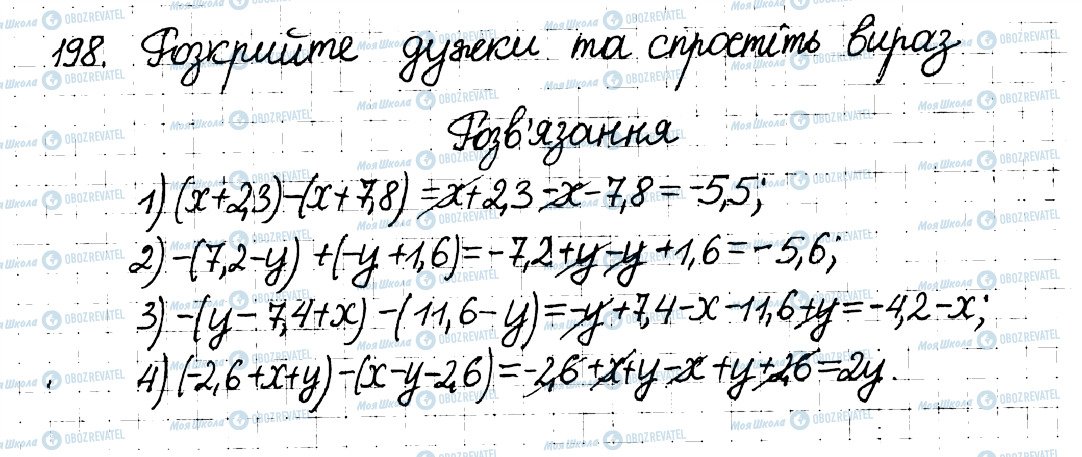 198. Розкрийте дужки та спростіть вираз
Розв'язання
1) (x+2,3)-(x+7,8) = x+2,3-x-7,8 = -5,5;
2) -(7,2-y)+(-y+1,6) = -7,2+y-y+1,6 = -5,6;
3) -(y-7,4+x)-(11,6-y) = -y+7,4-x-11,6+y = -4,2-x;
4) (-2,6+x+y)-(x-y-2,6) = -2,6+x+y-x+y+2,6 = 2y.